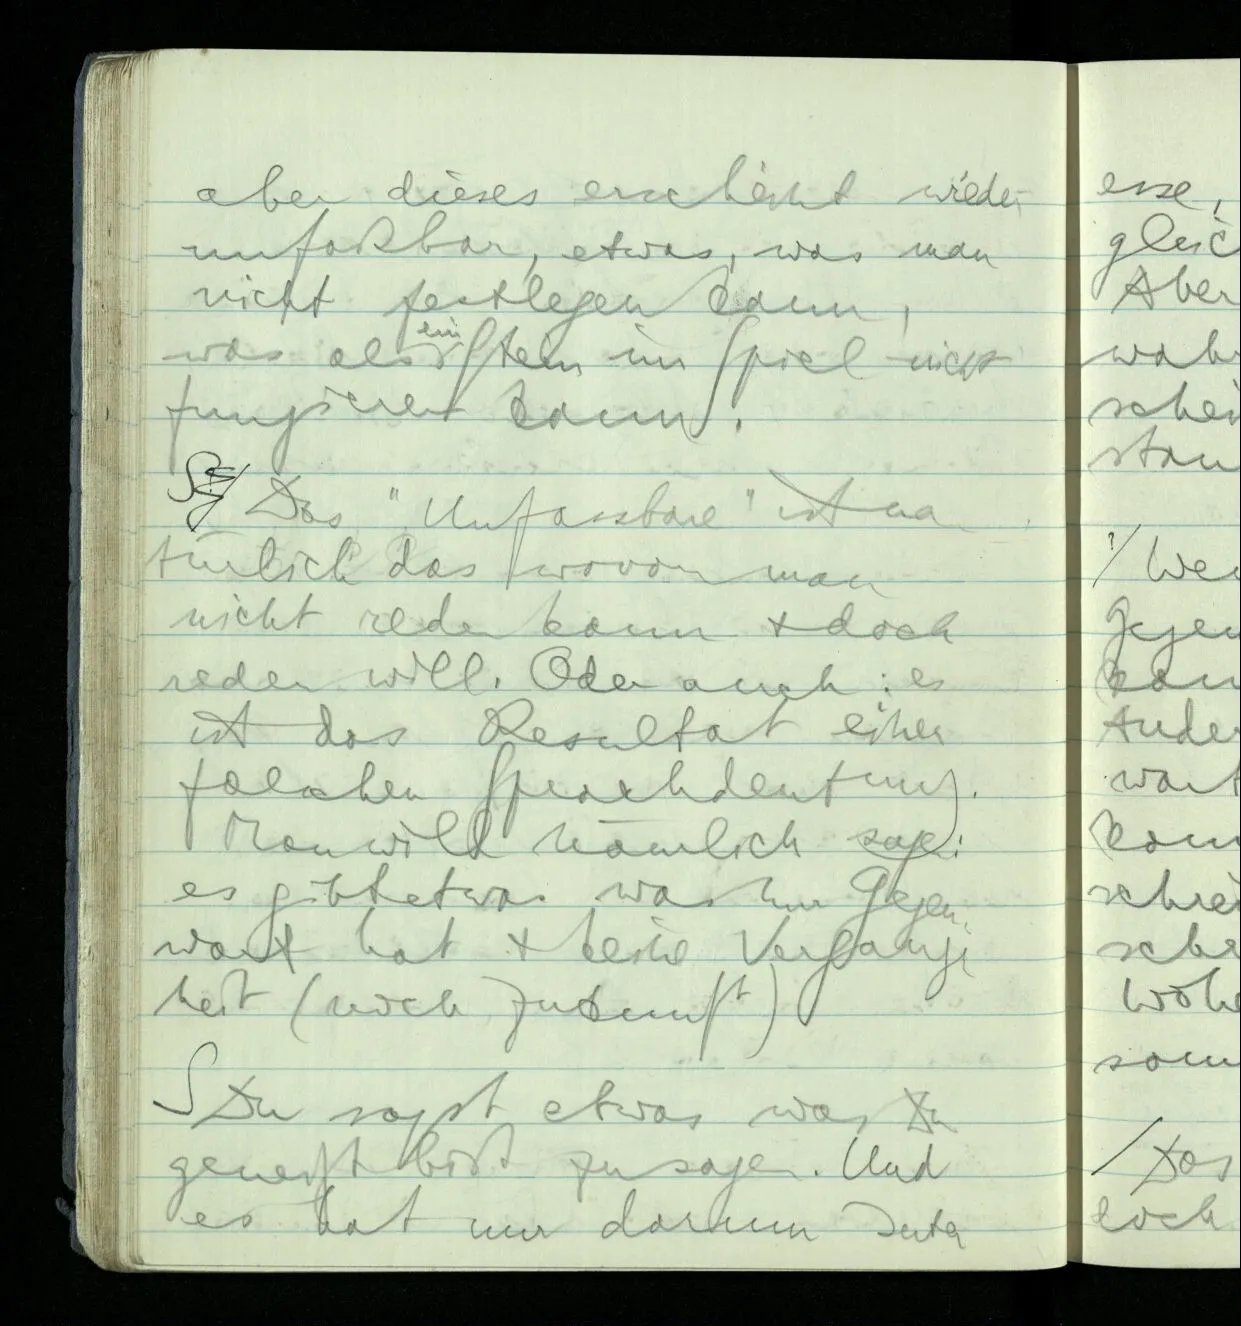 aber dieses erscheint wieder
unfaßbar, etwas, was man
nicht festlegen kann,
was als ein Stein im Spiel nicht
fungieren kann.
S Das "Unfassbare" ist na
türlich das wovon man
nicht reden kann + doch
reden will. Oder auch: es
ist das Resultat einer
falschen Sprachdeutung.
Man will nämlich sagen:
es gibt etwas was nur Gegen-
wart hat + keine Vergangen
heit (noch Zukunft)
S Du sagst etwas was Du
geneigt bist zu sagen. Und
es hat nur darum Inter
esse,
gleic
Aber
wah
schei
stan
?/ We
Gegen
kan
Ander
wart
kom
schrei
schr
som
/ Das